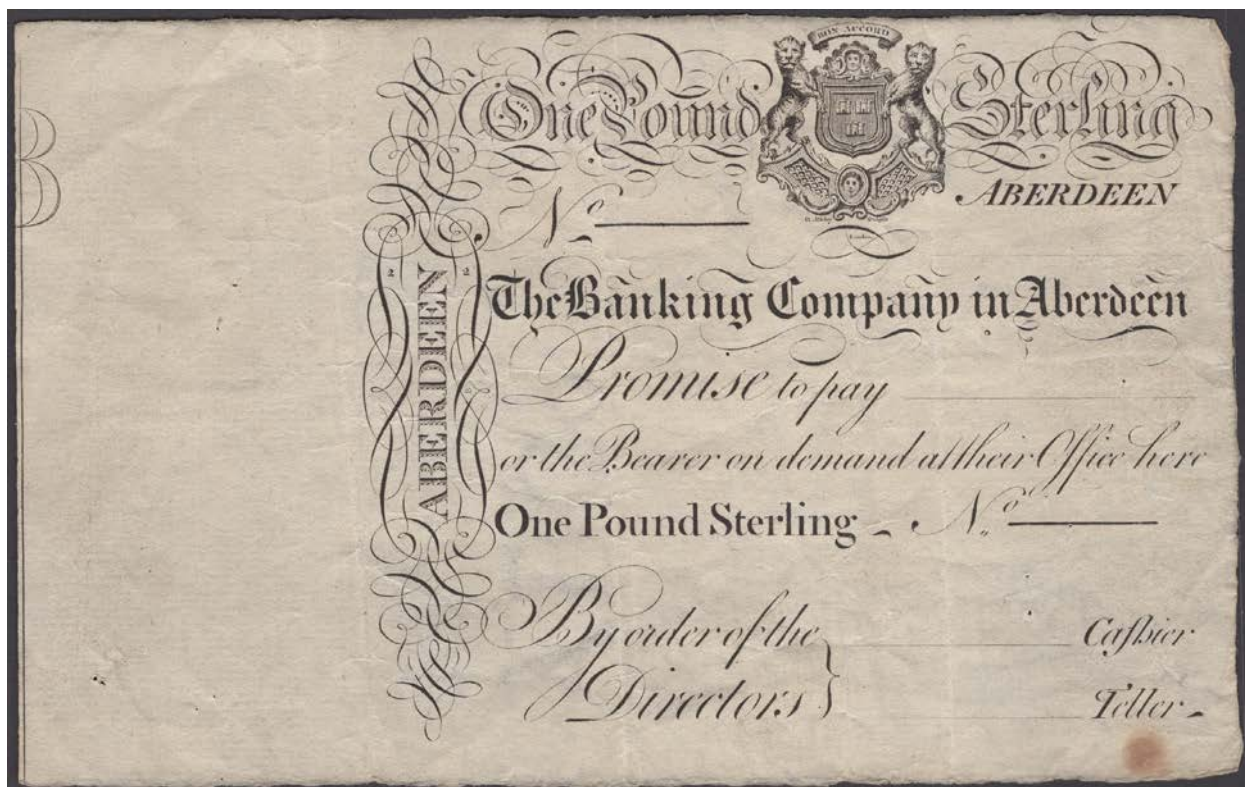 BON ACCORD
One Pound Sterling
No
ABERDEEN
ABERDEEN
2 2
The Banking Company in Aberdeen
Promise to pay
or the Bearer on demand at their Office here
One Pound Sterling No
By order of the Caſhier
Directors Teller